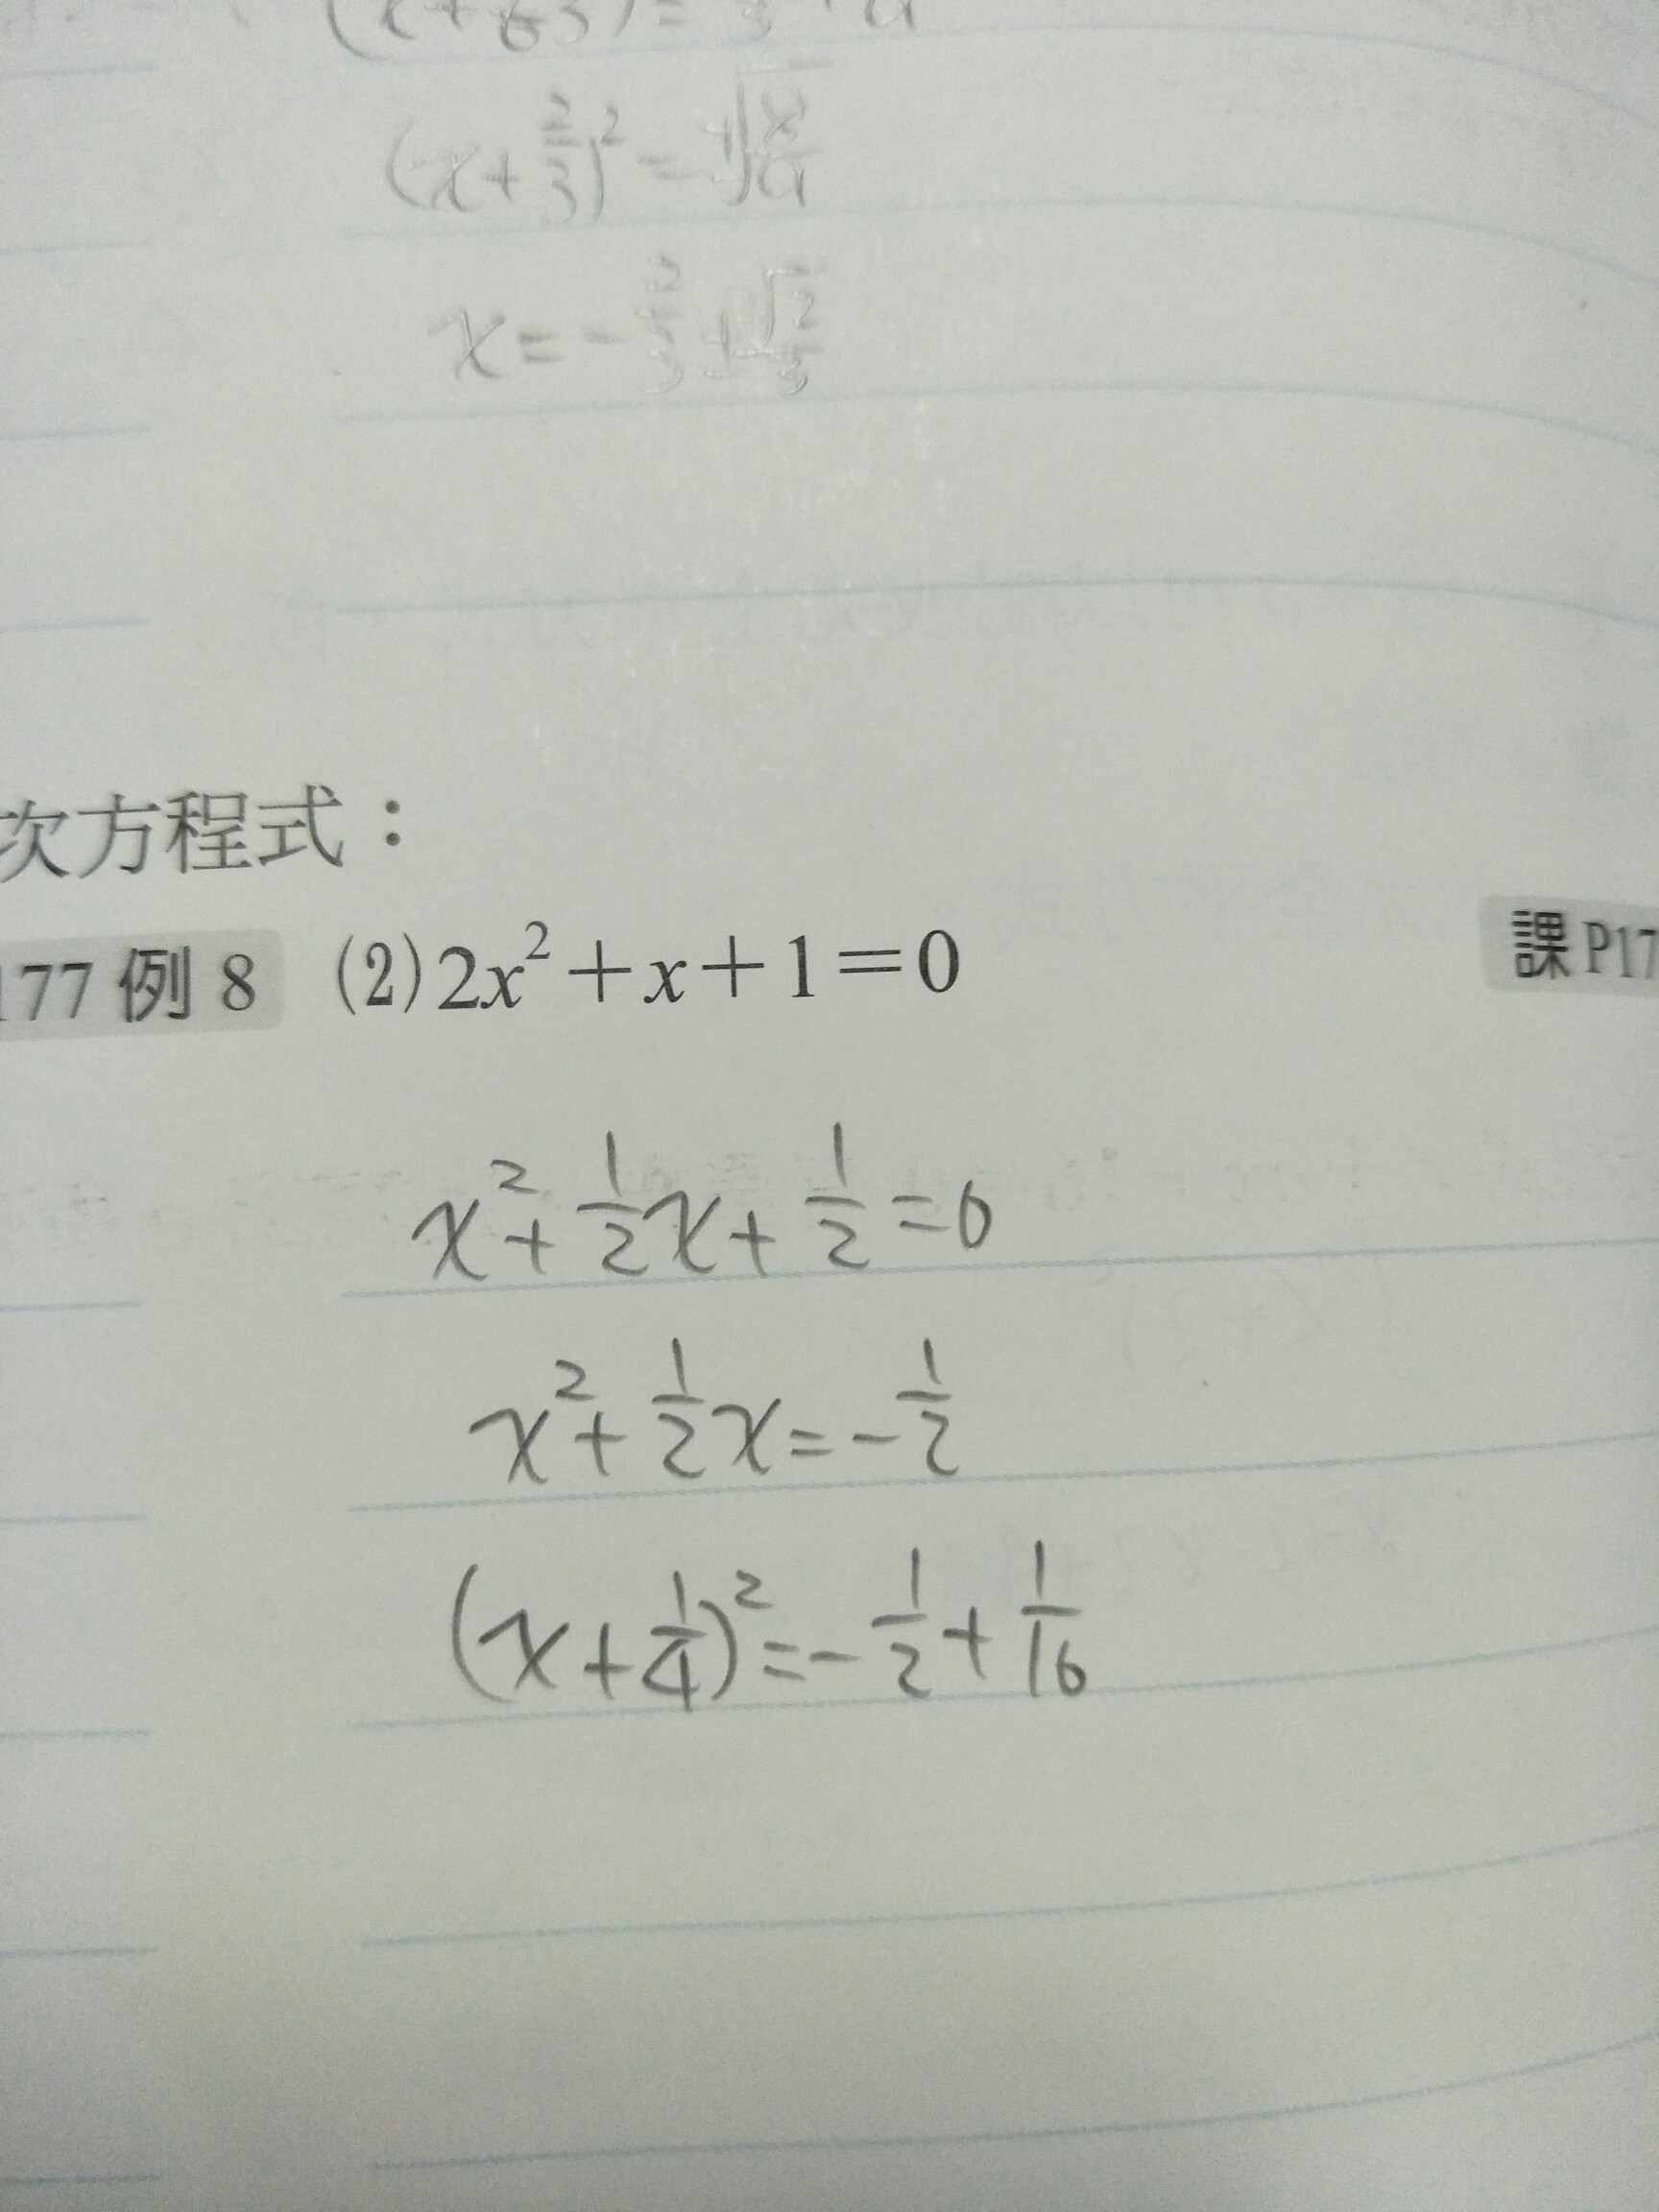 (x+2/3)²=±√
x=-2/3±√2/3
次方程式：
177 例 8 (2)2x²+x+1=0 課P17
x²+1/2x+1/2=0
x²+1/2x=-1/2
(x+1/4)²=-1/2+1/16